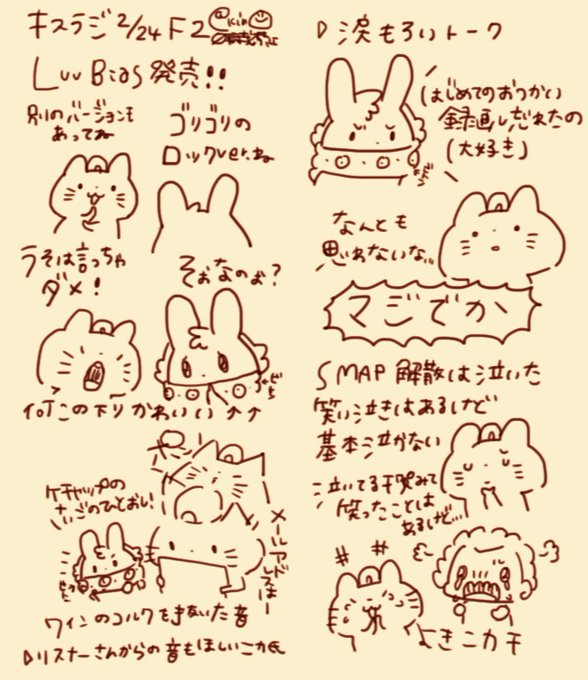 キスラジ 2/24 F2
Luv Bias 発売!!
別のバージョンも
あってね
ゴリゴリの
ロックver.ね
うそは言っちゃ
ダメ!
そぉなのよ?
この下りかわいい↑↑
ケチャップの
さいごのひとおし!
メールアドレスはー
ワインのコルクをぬいた音
リスナーさんからの音もほしいニカ氏
涙もろいトーク
はじめてのおつかい
録画し忘れたの
(大好き)
なんとも
思わないな…
マジでか
SMAP 解散は泣いた
笑い泣きはあるけど
基本泣かない
泣いてる千晩みて
笑ったことは
あるけど…
よきニカチ